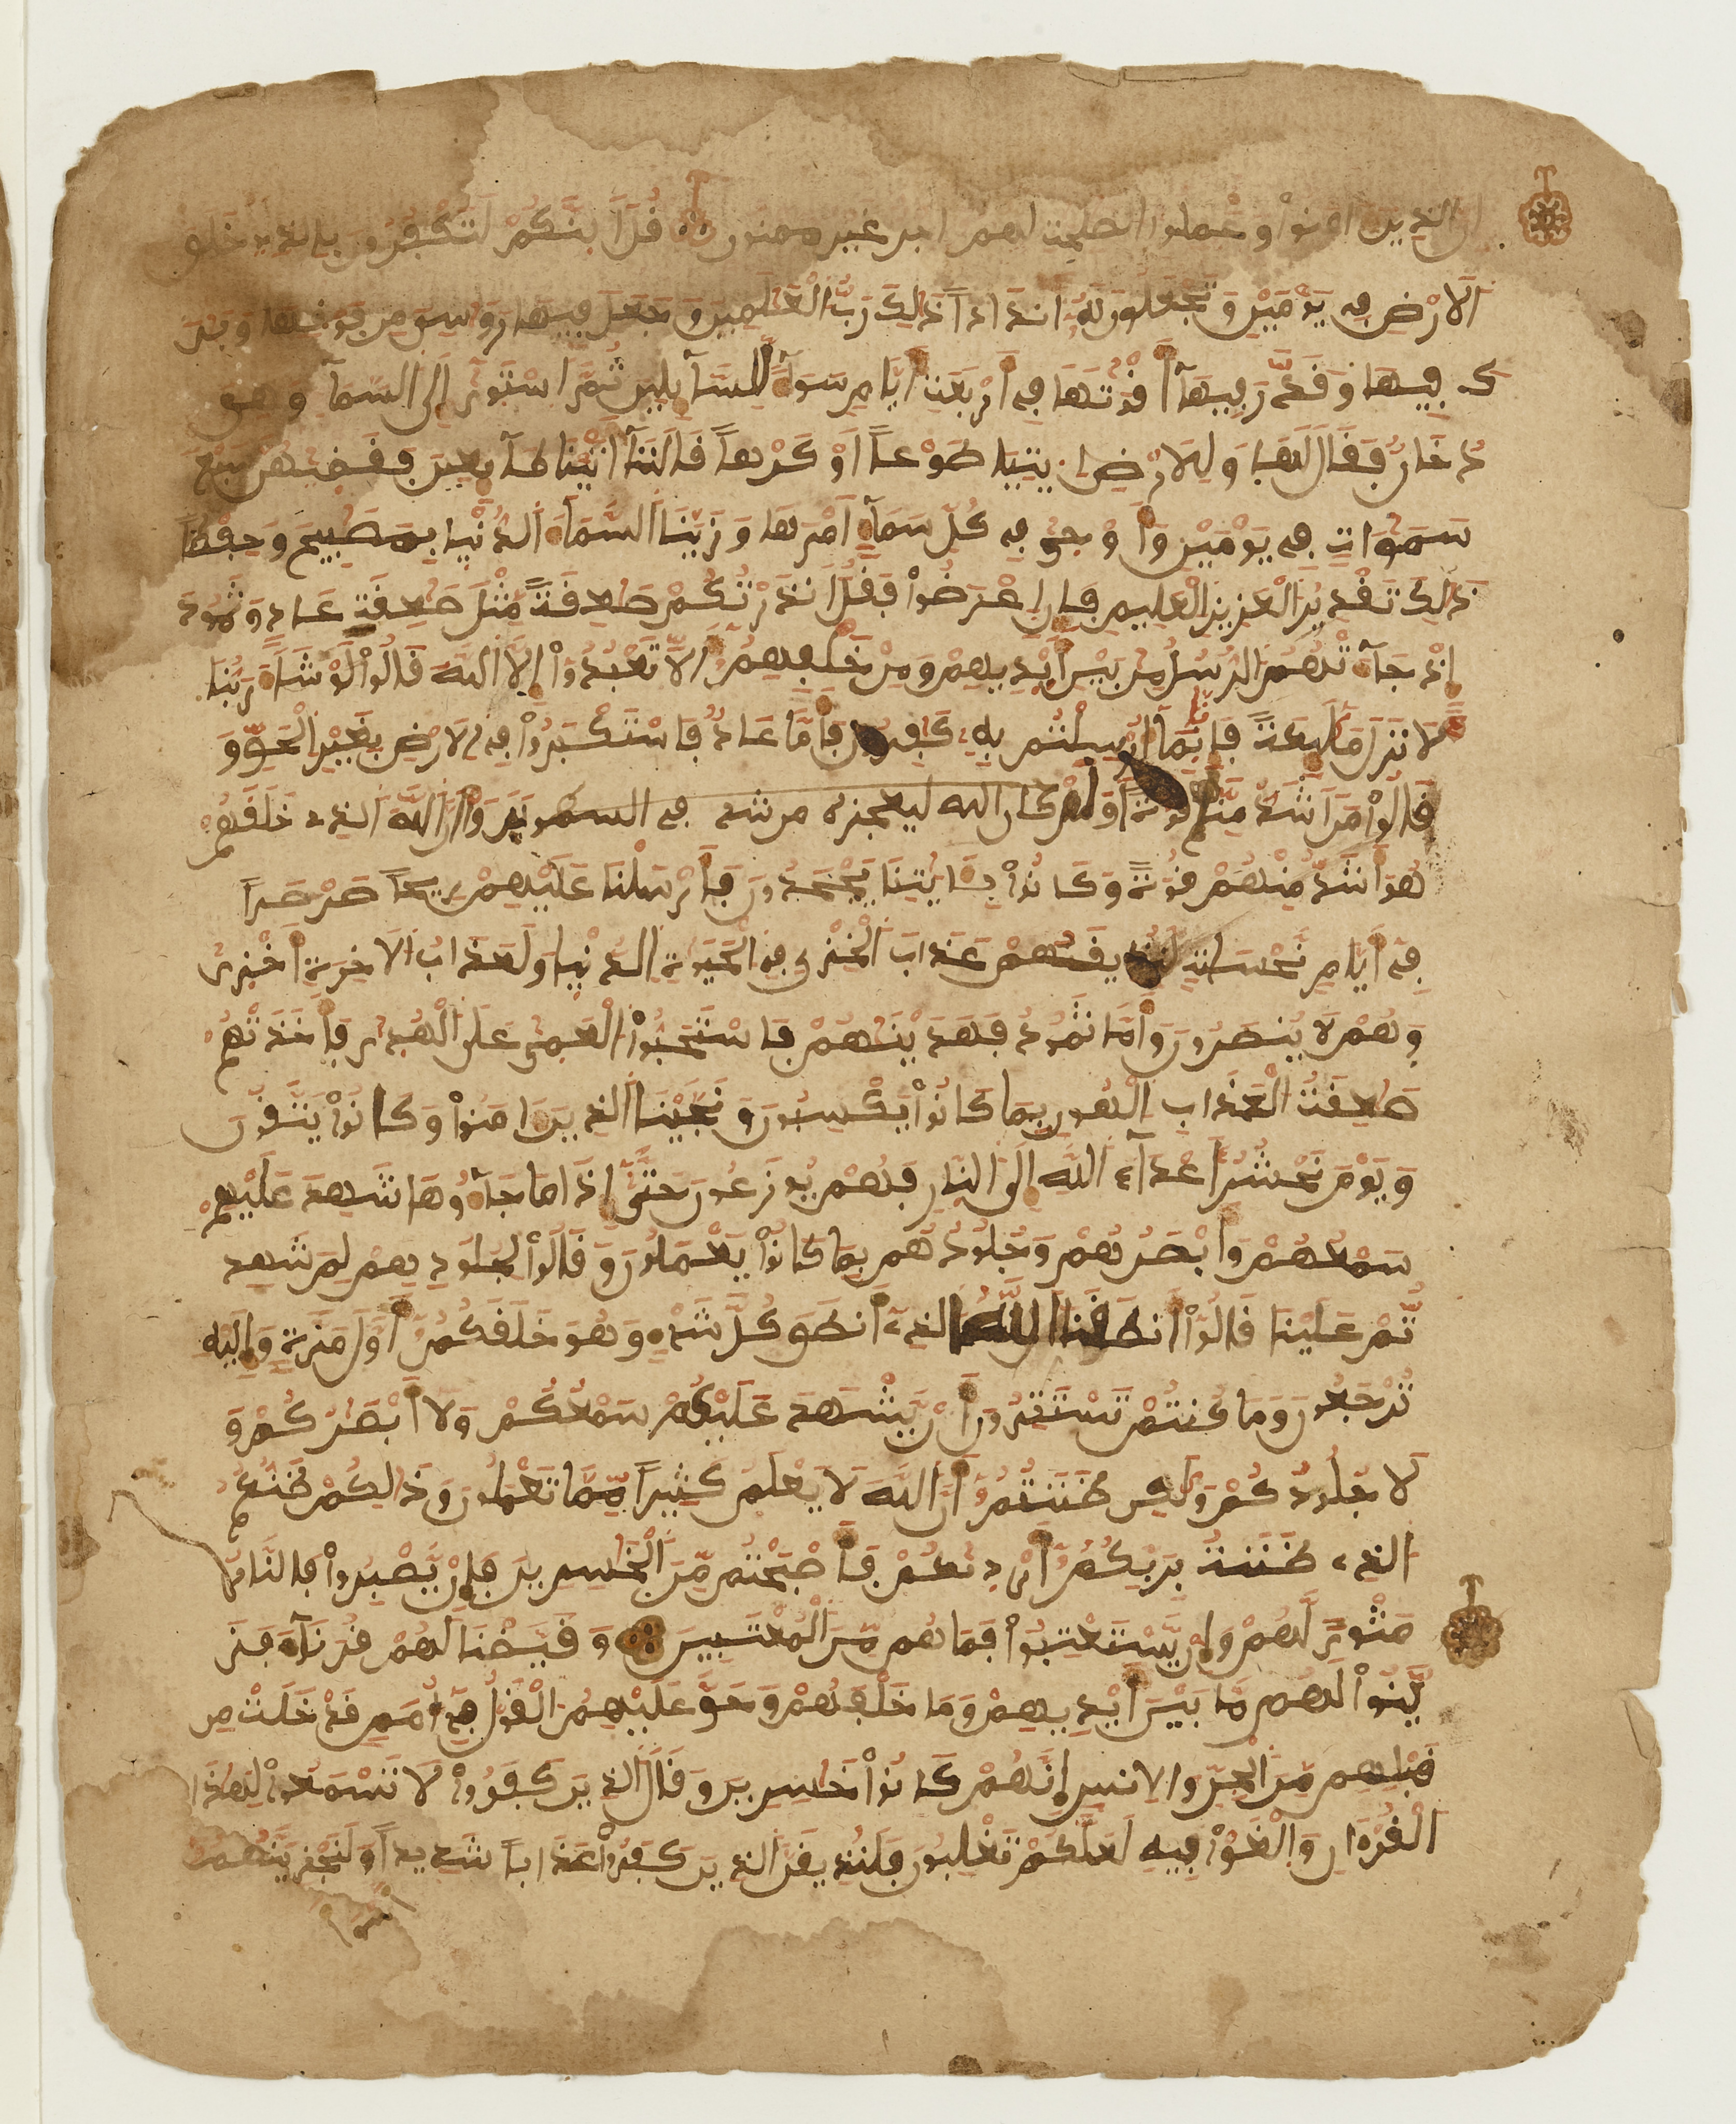 ان الذين امنوا وعملوا الصلحت لهم اجر غير ممنون قل اينكم لتكفرون بالذي خلق
الارض في يومين وتجعلون له اندادا ذلك رب العلمين وجعل فيها روسي من فوقها وبر
ك فيها وقدر فيها أقوتها في أربعة أيام سوآء للسآيلين ثم استوى إلى السمآ وهي
دخان فقال لها وللارض ايتيا طوعا أو كرها قالتآ أتينا طآيعين فقضيهن سبع
سموات في يومين وأوحى في كل سمآء أمرها وزينا السمآء الدنيا بمصبيح وحفظا
ذلك تقدير العزيز العليم فإن اعرضوا فقل انذرتكم صعقة مثل صعقة عاد وثمود
إذ جآءتهم الرسل من بين أيديهم ومن خلفهم ألا تعبدوا إلا الله قالوا لو شآء ربنا
لانزل مليكة فإنا بمآ أرسلتم به كفرون فأما عاد فاستكبروا في الارض بغير الحق و
قالوا من أشد منا قوة أو لم كان الله ليعجزه من شيء في السموت يروا أن الله الذي خلقهم
هو أشد منهم قوة وكانوا بـايتنا يجحدون فأرسلنا عليهم ريحا صرصرا
في أيام نحسات لنذيقهم عذاب الخزي في الحيوة الدنيا ولعذاب الاخرة أخزى
وهم لا ينصرون وأما ثمود فهدينهم فاستحبوا العمى على الهدى فأخذتهم
صعقة العذاب الهون بما كانوا يكسبون ونجينا الذين امنوا وكانوا يتقون
ويوم نحشر أعدآء الله إلى النار فهم يوزعون حتى إذا ما جآءوها شهد عليهم
سمعهم وأبصرهم وجلودهم بما كانوا يعملون وقالوا لجلودهم لم شهد
تم علينا قالوا أنطقنا الله الذي أنطق كل شيء وهو خلقكم أول مرة وإليه
ترجعون وما كنتم تستترون أن يشهد عليكم سمعكم ولا أبصركم و
لا جلودكم ولكن ظننتم أن الله لا يعلم كثيرا مما تعملون وذلكم ظنكم
الذي ظننتم بربكم أرديكم فأصبحتم من الخسرين فإن يصبروا فالنار
مثوى لهم وإن يستعتبوا فما هم من المعتبين وقيضنا لهم قرنآء فز
ينوا لهم ما بين أيديهم وما خلفهم وحق عليهم القول في أمم قد خلت من
قبلهم من الجن والانس إنهم كانوا خسرين وقال الذين كفروا لا تسمعوا لهذا
القرءان والغوا فيه لعلكم تغلبون فلنذيقن الذين كفروا عذابا شديدا ولنجزينهم